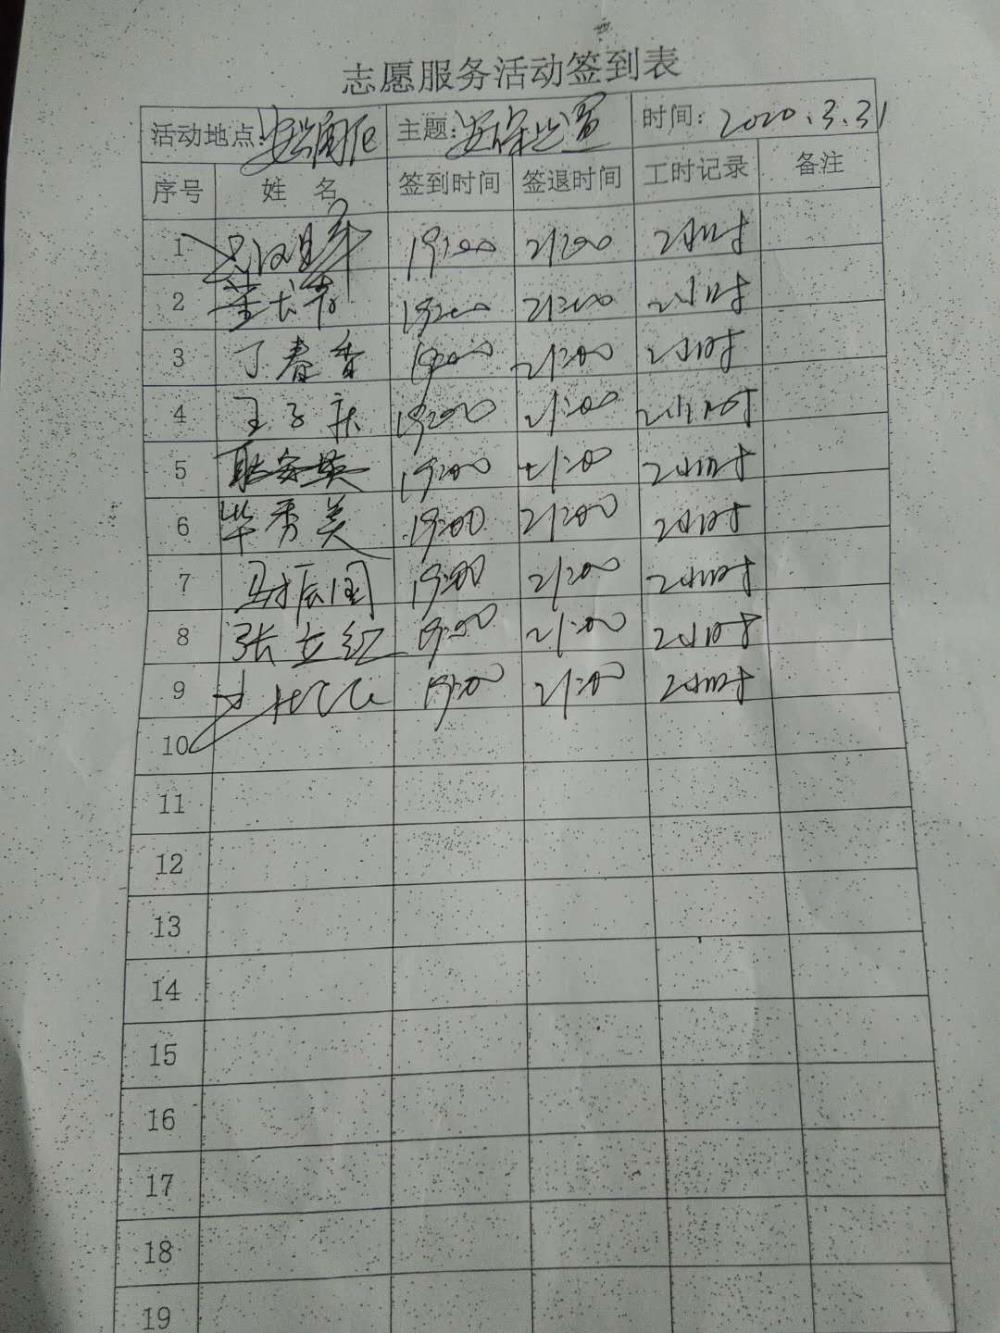 志愿服务活动签到表
活动地点: 主题: 时间: 2020.3.31
序号 姓 名 签到时间 签退时间 工时记录 备注
1 19:00 21:00 2小时
2 19:00 21:00 2小时
3 丁春香 19:00 21:00 2小时
4 王子庆 19:00 21:00 2小时
5 19:00 21:00 2小时
6 毕秀美 19:00 21:00 2小时
7 19:00 21:00 2小时
8 张立红 19:00 21:00 2小时
9 19:00 21:00 2小时
10
11
12
13
14
15
16
17
18
19